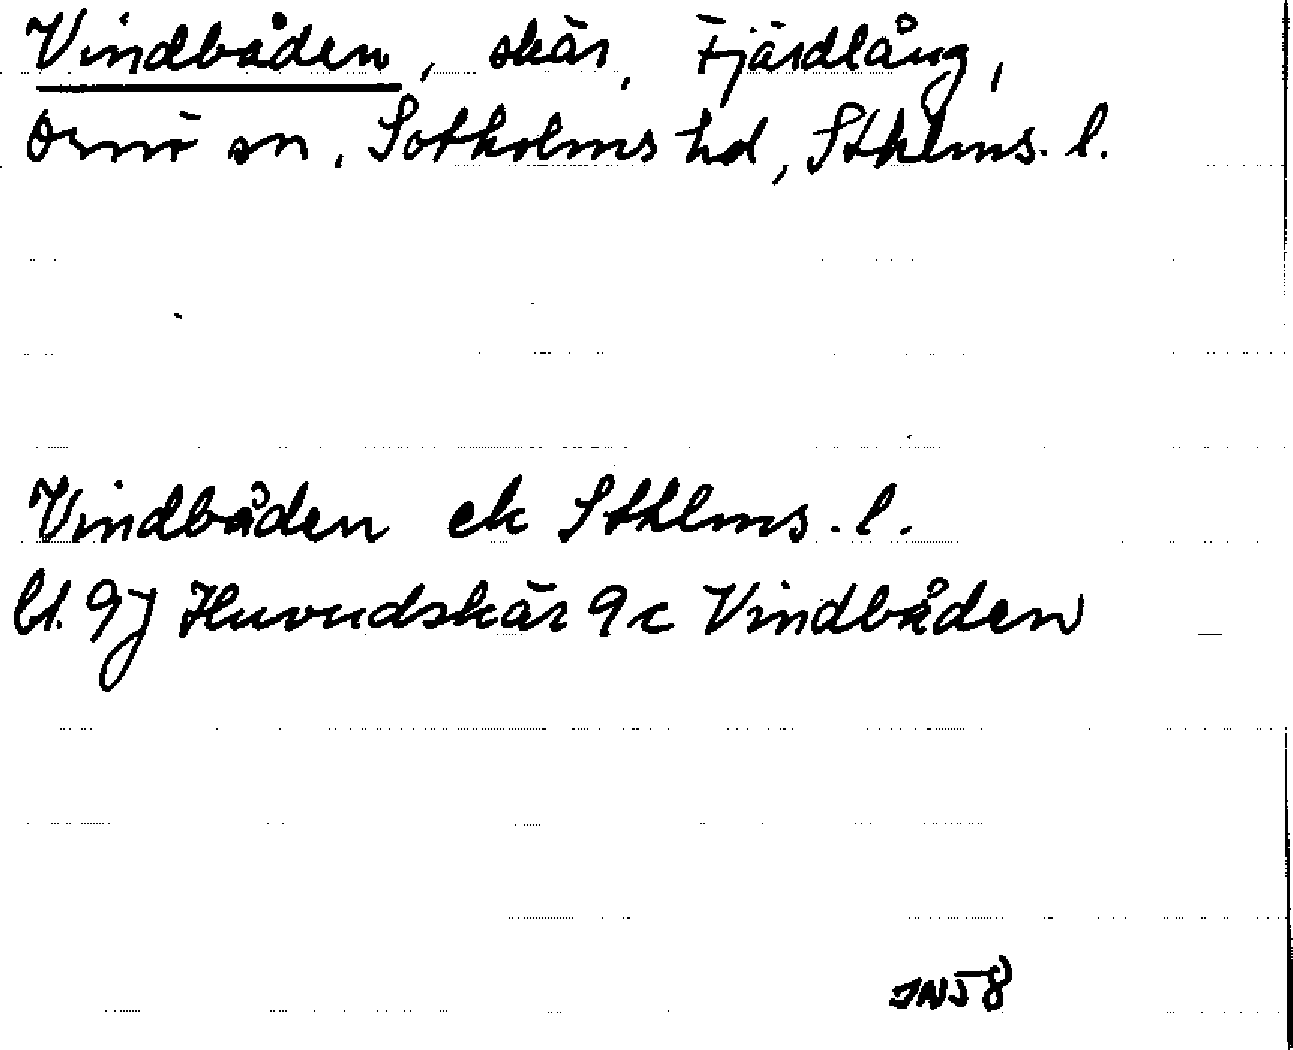 Vindbåden, skär, Fjärdlång,
Ornö sn, Sotholms hd, Sthlms. l.
Vindbåden ek Sthlms. l.
bl. 9J Huvudskär 9 c Vindbåden